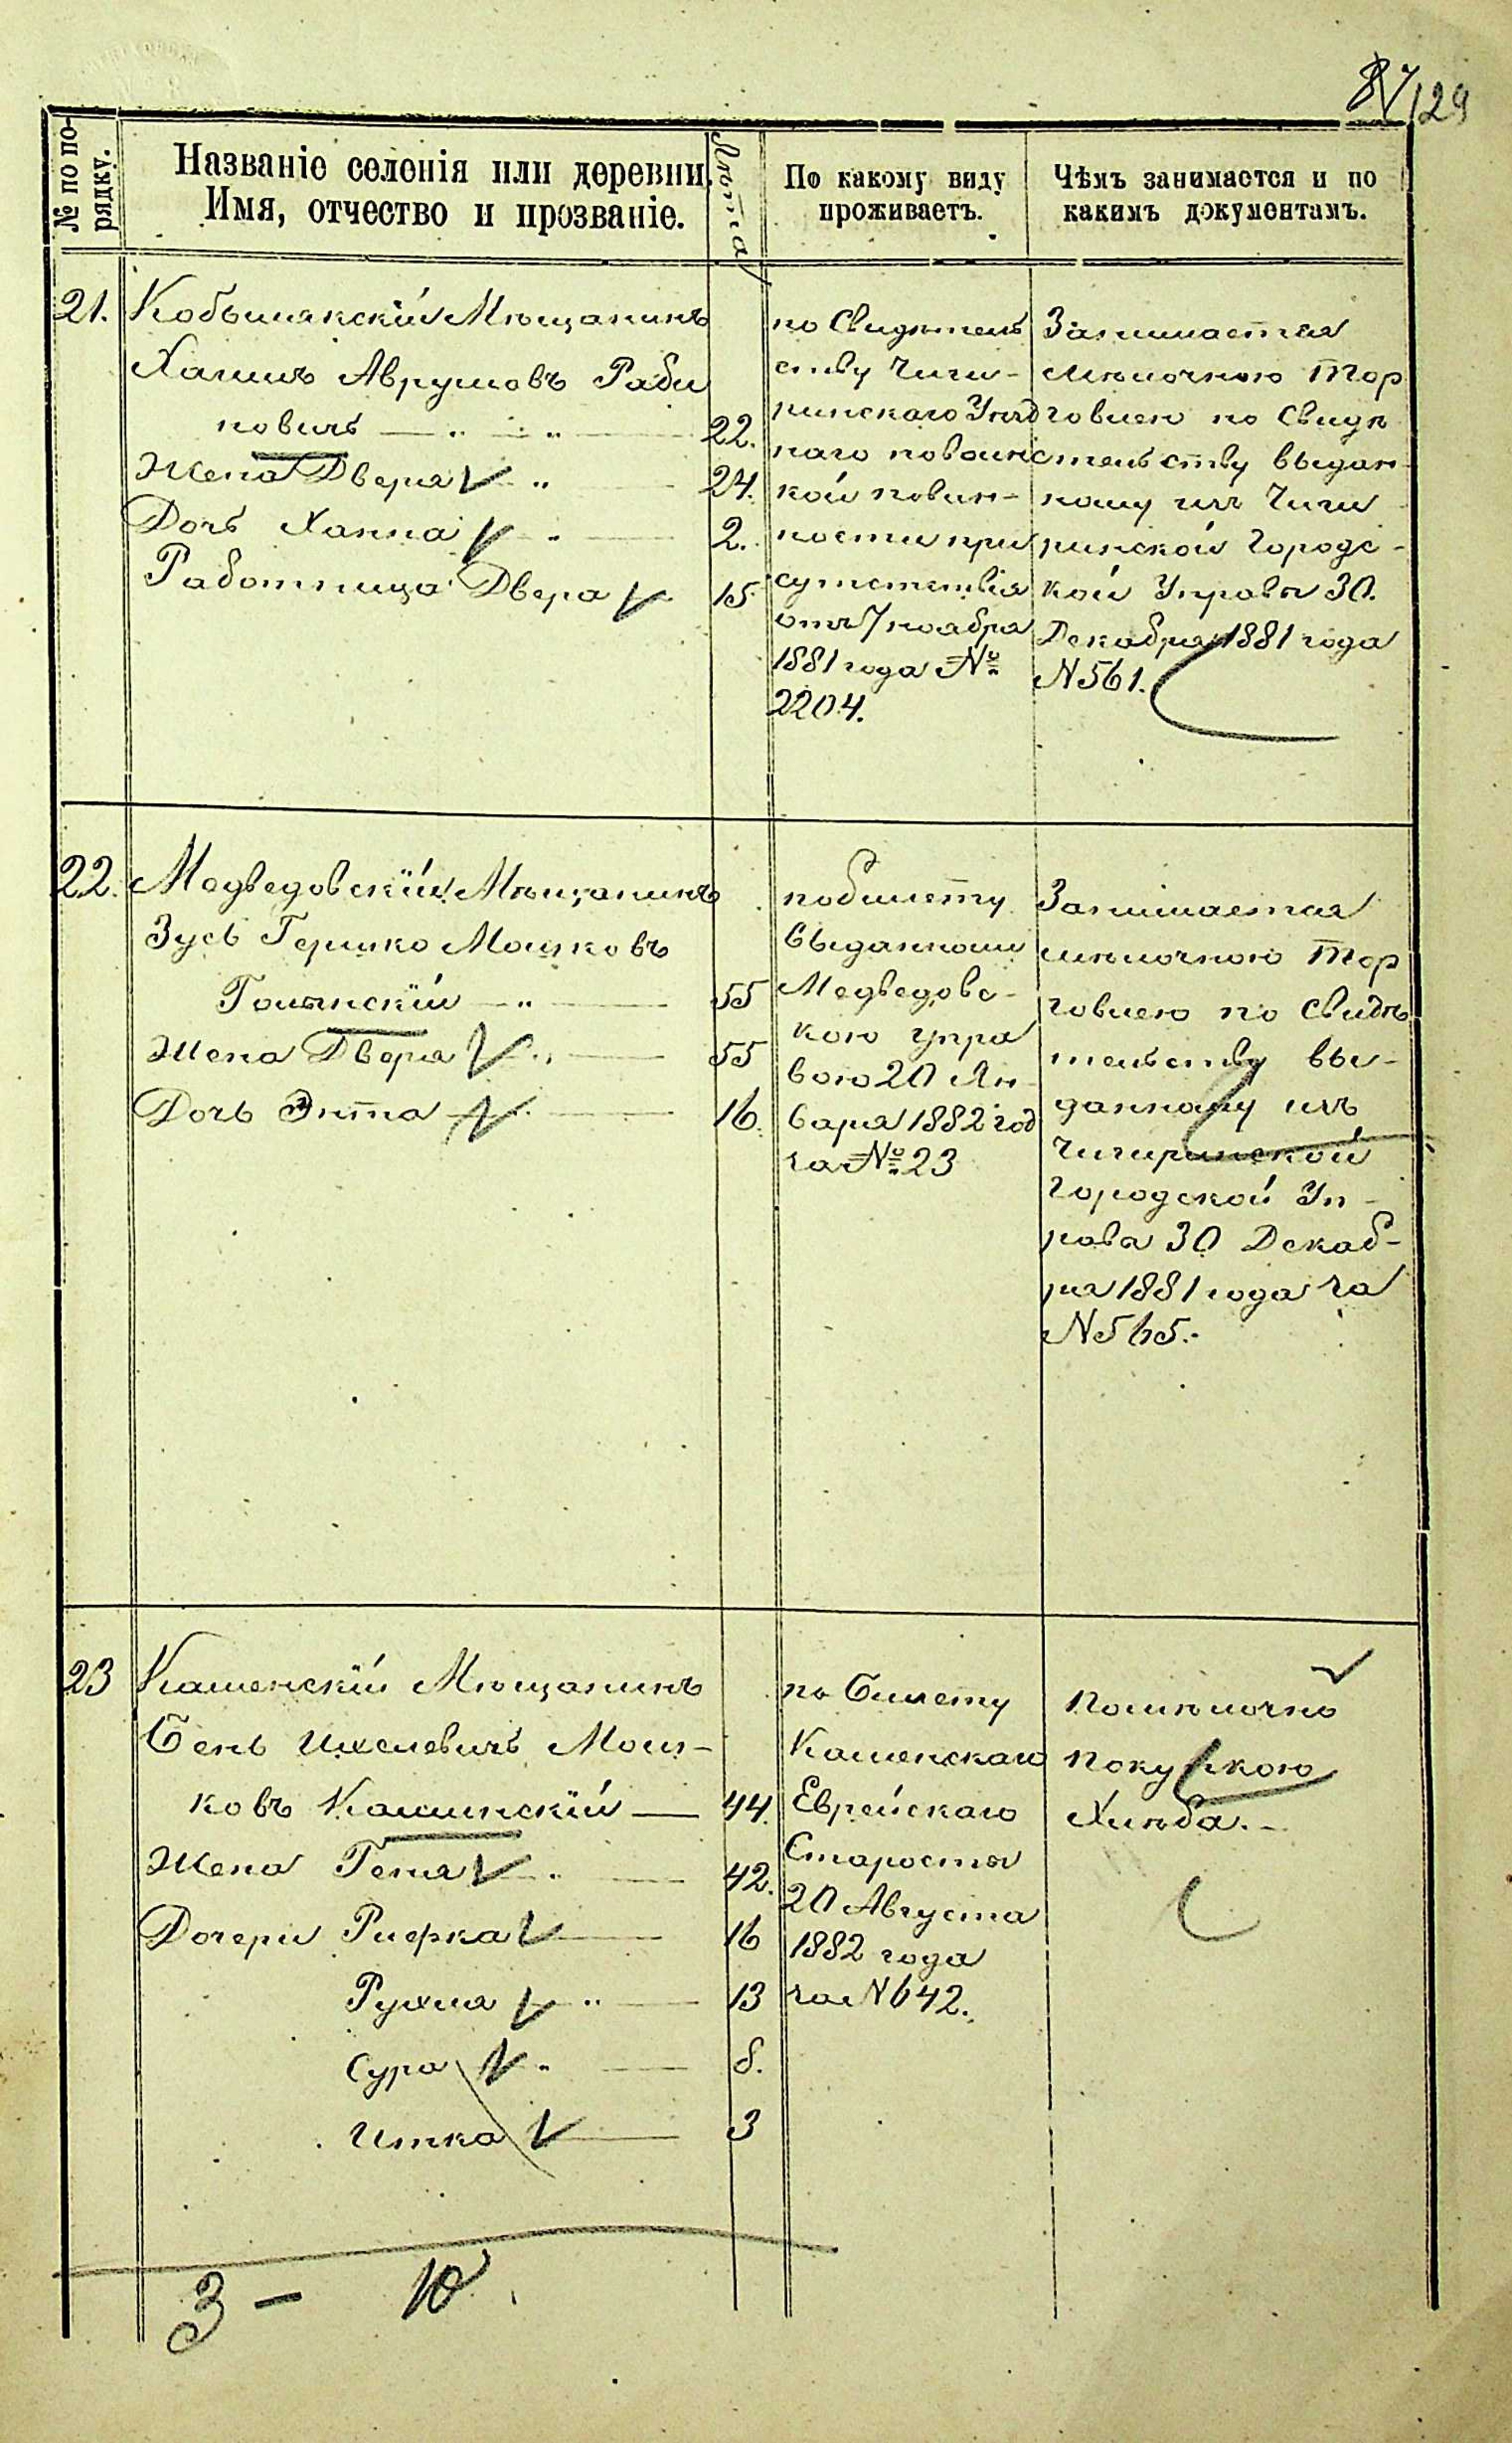 87/129
№ по по-
рядку.
Названіе селенія или деревни.
Имя, отчество и прозваніе.
Лѣта
По какому виду
проживаетъ.
Чѣмъ занимается и по
какимъ документамъ.
21.
Кобылякскій Мѣщанинъ
Хаимъ Аврумовъ Раби
новичъ 22.
Жена Двейра 24.
Дочь Ханна 2.
Работница Двера 15
по Свидѣтель
ству Чиги-
ринскаго Уѣзд
наго поваинс
кой повин-
ности при
сутствія
отъ 7 ноабра
1881 года №
2204.
Занимается
мѣлочною тор
говлею по Свидѣ
тельству выдан-
ному изъ Чиги
ринской Городс-
кой Управы 30.
Декабря 1881 года
N 561.
22.
Медведовскій Мѣщанинъ
Зусь Гершко Мошковъ
55
Жена Двера 55
Дочь Энта 16.
по билету
выданному
Медведовс-
кою упра
вою 20 Ян-
варя 1882 год
за № 23
Занимается
мѣлочною тор
говлею по свидѣ
тельству вы-
данному изъ
Чигиринской
Городской Уп-
равы 30 Декаб-
ря 1881 года за
N 565.
23
Каменскій Мѣщанинъ
Бень Ихелевичъ Мош-
ковъ Каминскій 44.
Жена Геня 42.
Дочери Рифка 16
Рухля 13
Сура 8.
Итка 3
по билету
Каменскаго
Еврейскаго
Старосты
20 Августа
1882 года
за N 642.
Помѣлочно
покупкою
Хлѣба.
3 - 10